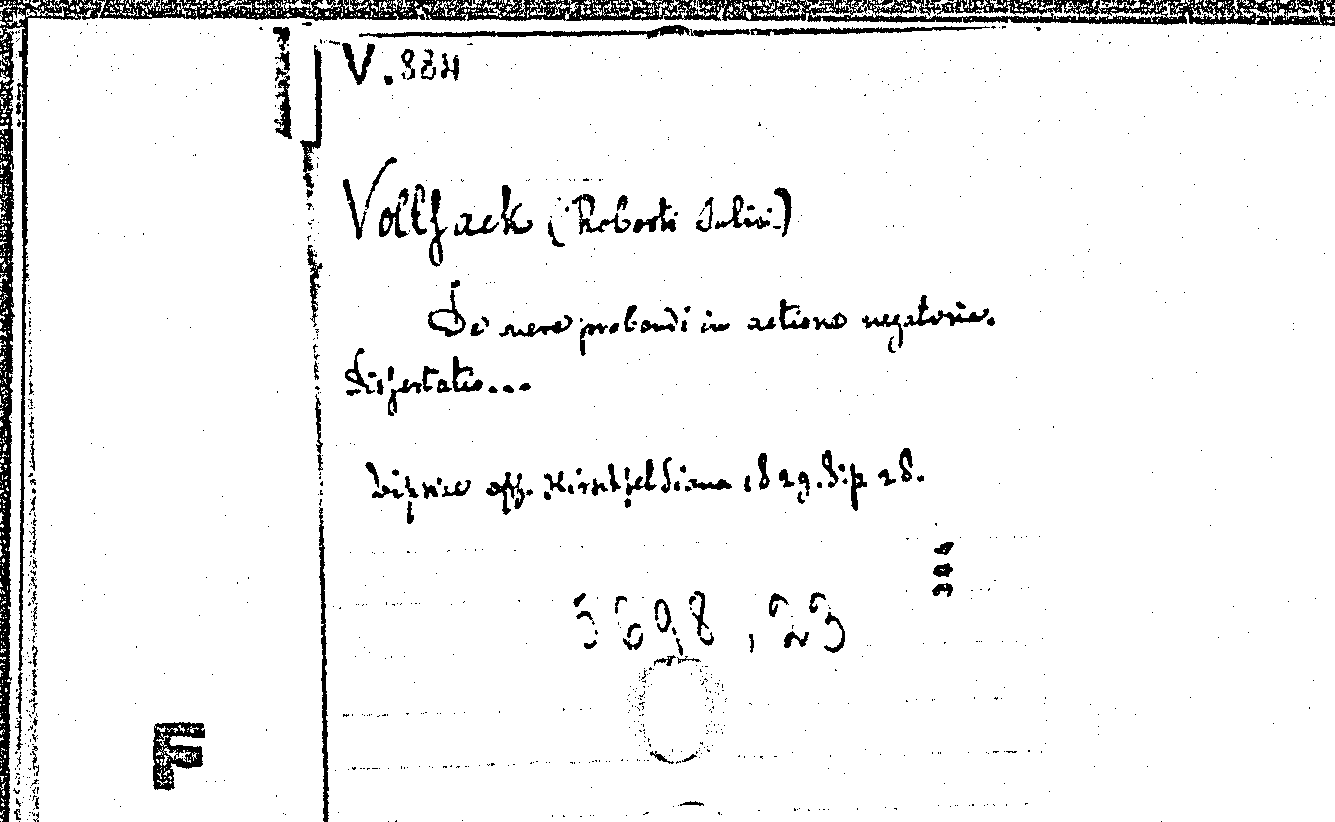 V.834
Vollsack (Roberti Julii)
De onere probandi in actione negatoria.
Dissertatio...
Lipsiae off. Hirschfeldiana 1829. 8. p 28.
304
5698,23
F